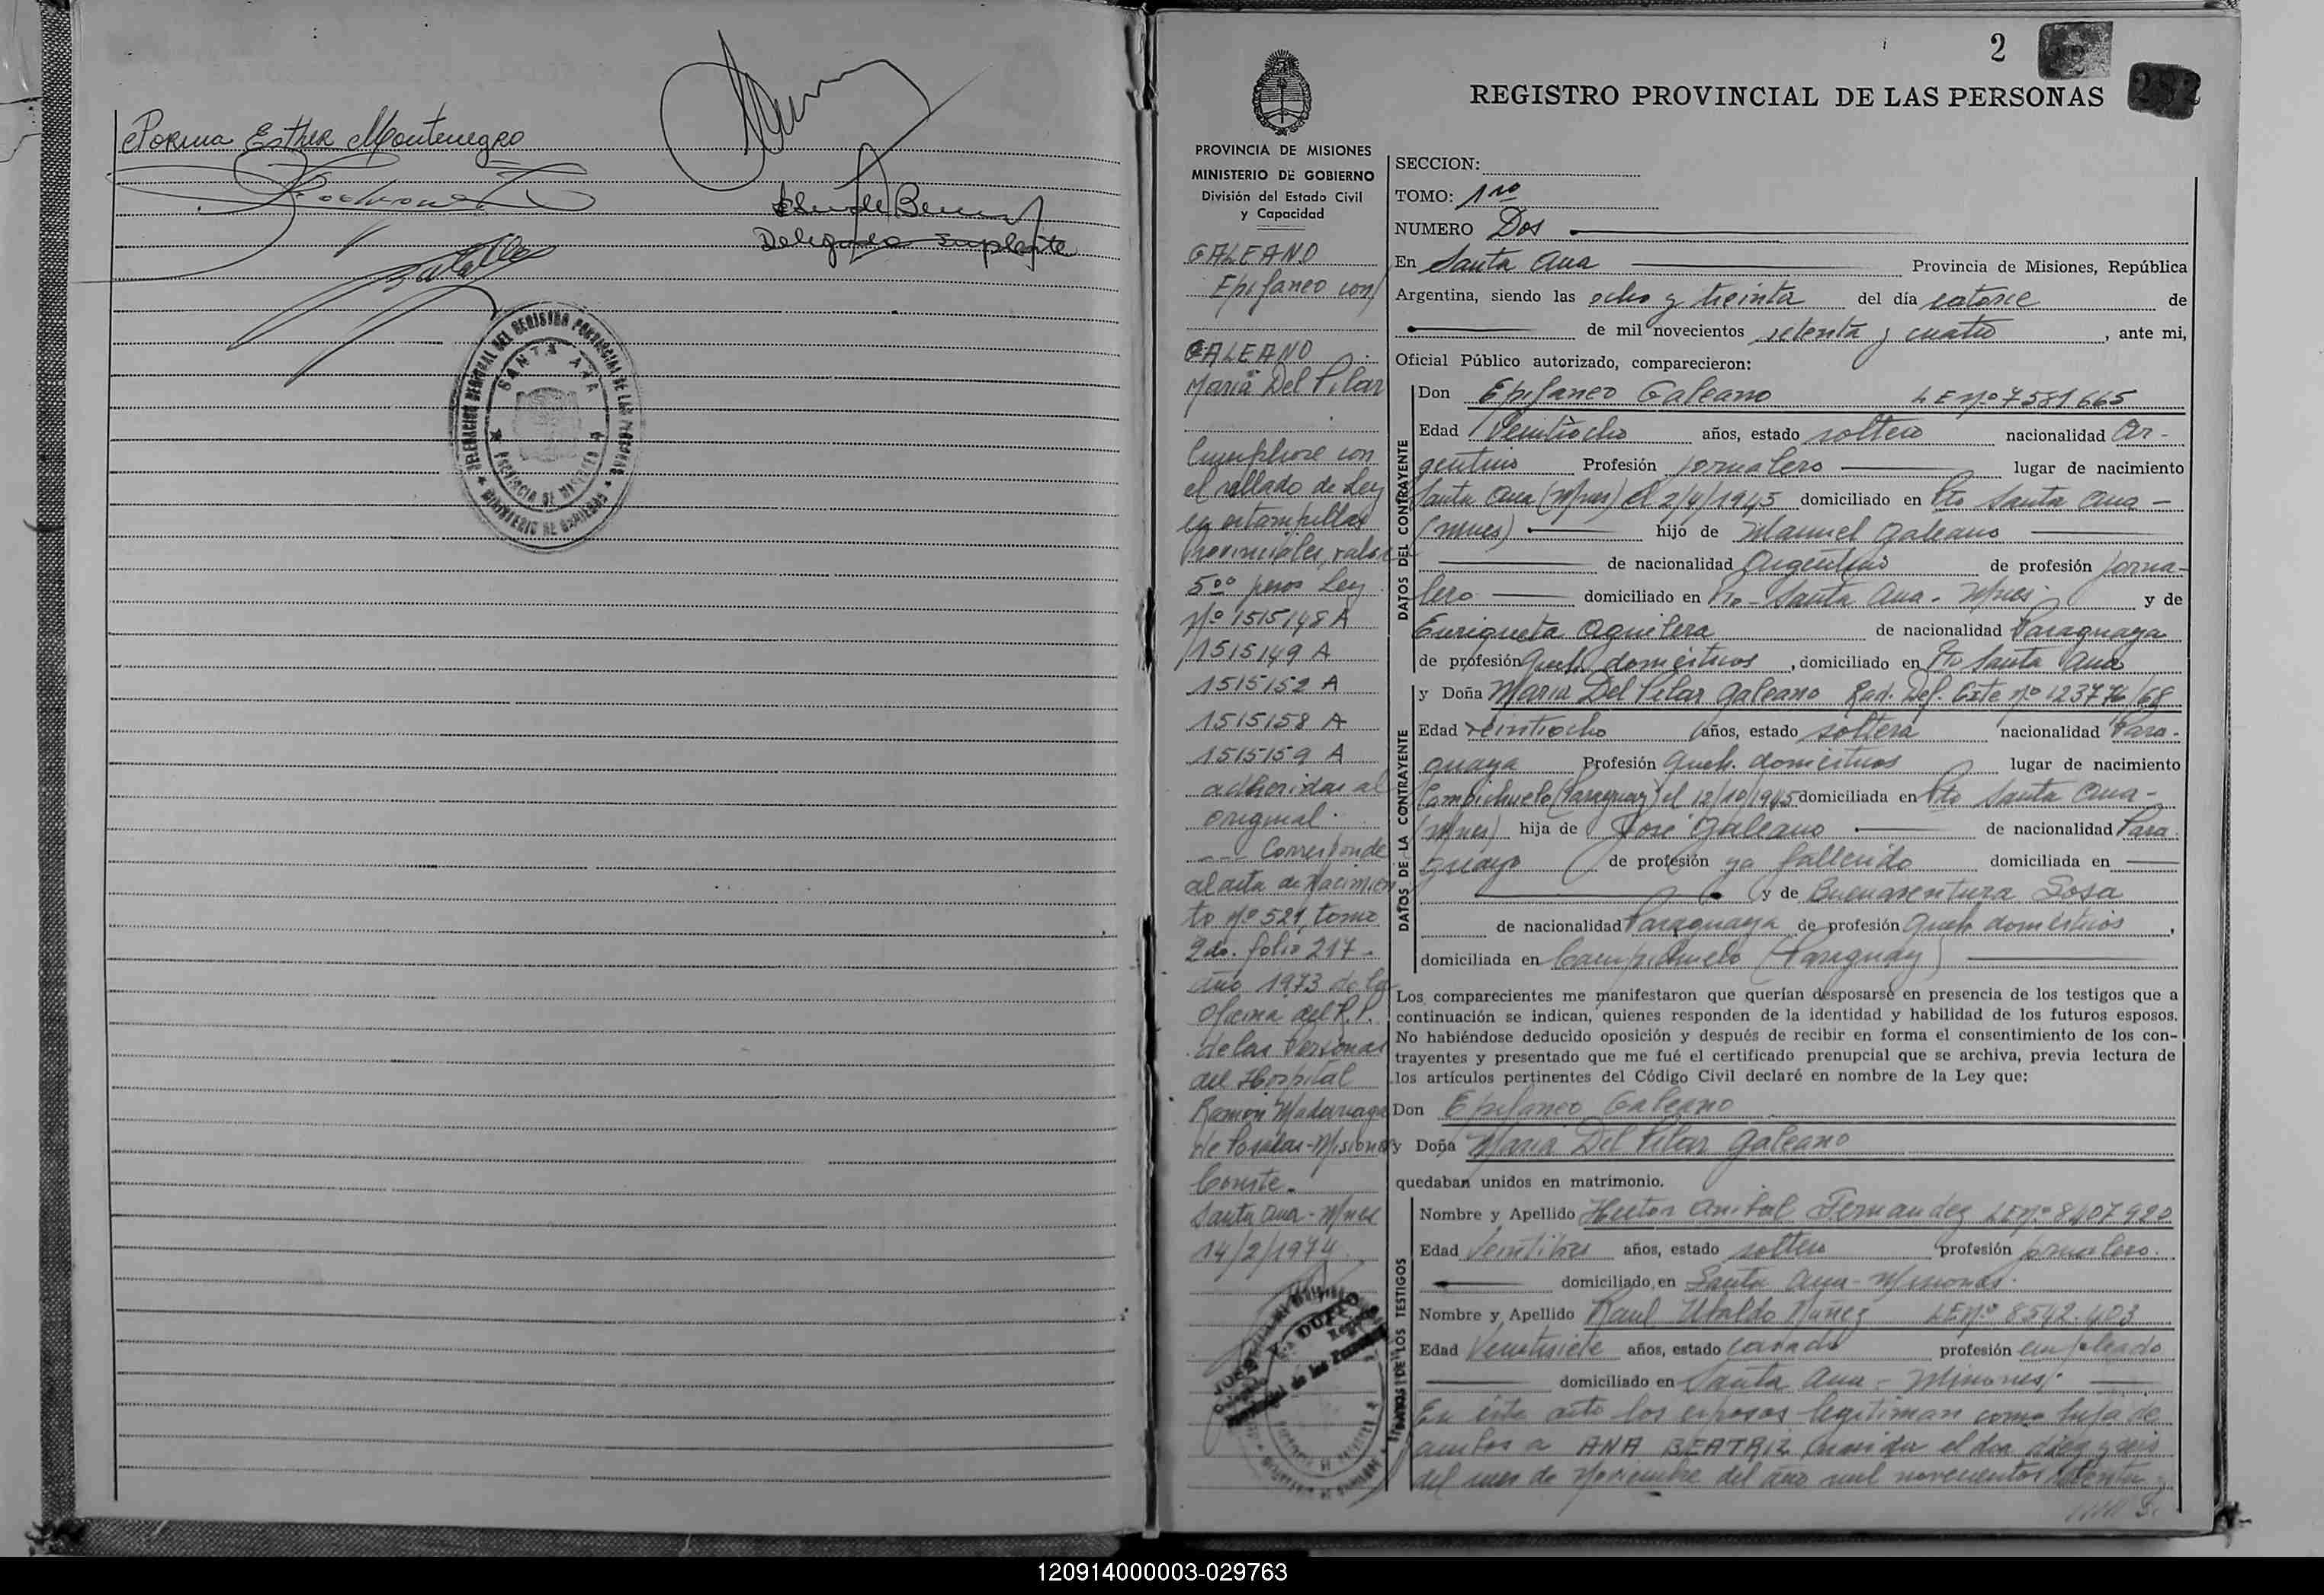 Norma Esther Montenegro
Delegado Suplente
DELEGACION SECCIONAL DEL REGISTRO PROVINCIAL DE LAS PERSONAS
SANTA ANA
PROVINCIA DE MISIONES
MINISTERIO DE GOBIERNO
2
252
REGISTRO PROVINCIAL DE LAS PERSONAS
PROVINCIA DE MISIONES
MINISTERIO DE GOBIERNO
División del Estado Civil
y Capacidad
GALEANO
Epifaneo con
GALEANO
Maria Del Pilar
Cumpliose con
el sellado de Ley
en estampillas
Provinciales, valor
5oo pesos Ley
Nº 1515148 A
1515149 A
1515152 A
1515158 A
1515159 A
adheridas al
original.
--- Corresponde
al acta de Nacimien
to Nº 521, tomo
2do. folio 217-
año 1973 de la
Oficina del R.P.
de las Personas
del Hospital
Ramón Madariaga
de Posadas-Misiones
Conste.
Santa Ana-Mnes
14/2/1974
SECCION:
TOMO: 1ro
NUMERO Dos
En Santa Ana Provincia de Misiones, República
Argentina, siendo las ocho y treinta del día catorce de
de mil novecientos setenta y cuatro, ante mi,
Oficial Público autorizado, comparecieron:
DATOS DEL CONTRAYENTE
Don Epifaneo Galeano LE Nº 7581665
Edad Veintiocho años, estado soltero nacionalidad Ar-
gentino Profesión jornalero lugar de nacimiento
Santa Ana (Mnes) el 2/4/1945 domiciliado en Pto Santa Ana-
(Mnes) hijo de Manuel Galeano
de nacionalidad Argentino de profesión jorna-
lero domiciliado en Pto-Santa Ana-Mnes y de
Enriqueta Aguilera de nacionalidad Paraguaya
de profesión Queh. domésticos, domiciliado en Pto Santa Ana
DATOS DE LA CONTRAYENTE
y Doña Maria Del Pilar Galeano Rad. Def. Exte Nº 123776/68
Edad veintiocho años, estado soltera nacionalidad Para-
guaya Profesión Queh. domésticos lugar de nacimiento
Campichuelo (Paraguay) el 12/10/1945 domiciliada en Pto Santa Ana-
(Mnes) hija de José Galeano de nacionalidad Para
guayo de profesión ya fallecido domiciliada en
y de Buenaventura Sosa
de nacionalidad Paraguaya de profesión Queh domésticos,
domiciliada en Campichuelo (Paraguay)
Los comparecientes me manifestaron que querían desposarse en presencia de los testigos que a
continuación se indican, quienes responden de la identidad y habilidad de los futuros esposos.
No habiéndose deducido oposición y después de recibir en forma el consentimiento de los con-
trayentes y presentado que me fué el certificado prenupcial que se archiva, previa lectura de
los artículos pertinentes del Código Civil declaré en nombre de la Ley que:
Don Epifaneo Galeano
y Doña Maria Del Pilar Galeano
quedaban unidos en matrimonio.
DATOS DE LOS TESTIGOS
Nombre y Apellido Hector Anibal Fernandez LE Nº 8407920
Edad Veintitres años, estado soltero profesión jornalero.
domiciliado en Santa Ana-Misiones.
Nombre y Apellido Raul Ubaldo Nuñez LE Nº 8542.403
Edad Veintisiete años, estado casado profesión empleado
domiciliado en Santa Ana-Misiones.
En este acto los esposos legitiman como hija de
ambos a ANA BEATRIZ nacida el dia diez y seis
del mes de Noviembre del año mil novecientos setenta y
120914000003-029763